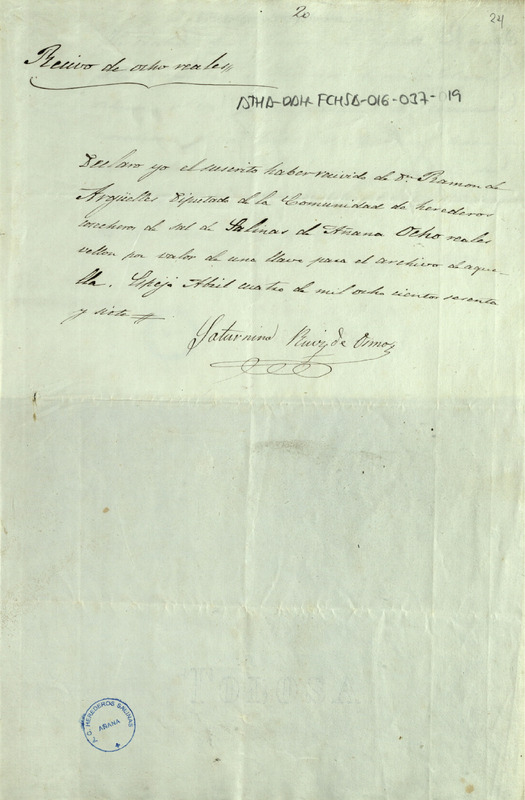 20
24
Recivo de ocho reales
ATHA-DAH-FCHSA-016-037-019
Declaro yo el suscrito haber recivido de Dn Ramon de
Argüelles Diputado de la Comunidad de herederos
cosecheros de sal de Salinas de Añana Ocho reales
vellon por valor de una llave para el archivo de aque-
lla. Espejo Abril cuatro de mil ocho cientos sesenta
y siete
Saturnino Ruiz de
C. HEREDEROS SALINAS
AÑANA